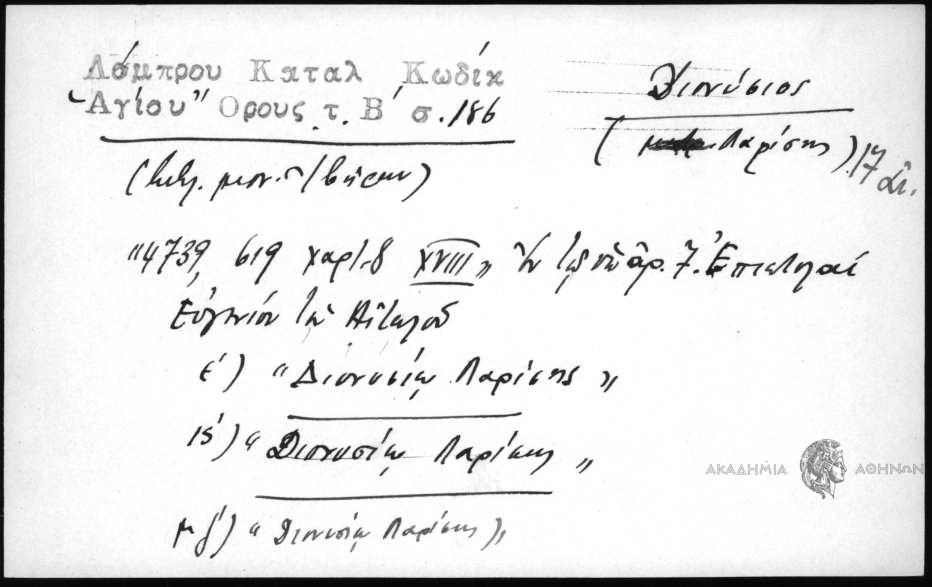 Λάμπρου Καταλ Κωδίκ
Ἁγίου Ὄρους τ. Β΄ σ. 186
Διονύσιος
( Λαρίσης) 17 αἰ.
(Ἐκκλ. μον. Ἰβήρων)
"4739, 619 χαρτ. 8 XVIII" Ἐν τῷ ὑπ' ἀρ. 7. Ἐπιστολαί
Εὐγενίου τοῦ Αἰτωλοῦ
ε΄) "Διονυσίῳ Λαρίσης"
ις΄) "Διονυσίῳ Λαρίσης"
μζ΄) "Διονυσίῳ Λαρίσης"
ΑΚΑΔΗΜΙΑ ΑΘΗΝΩΝ